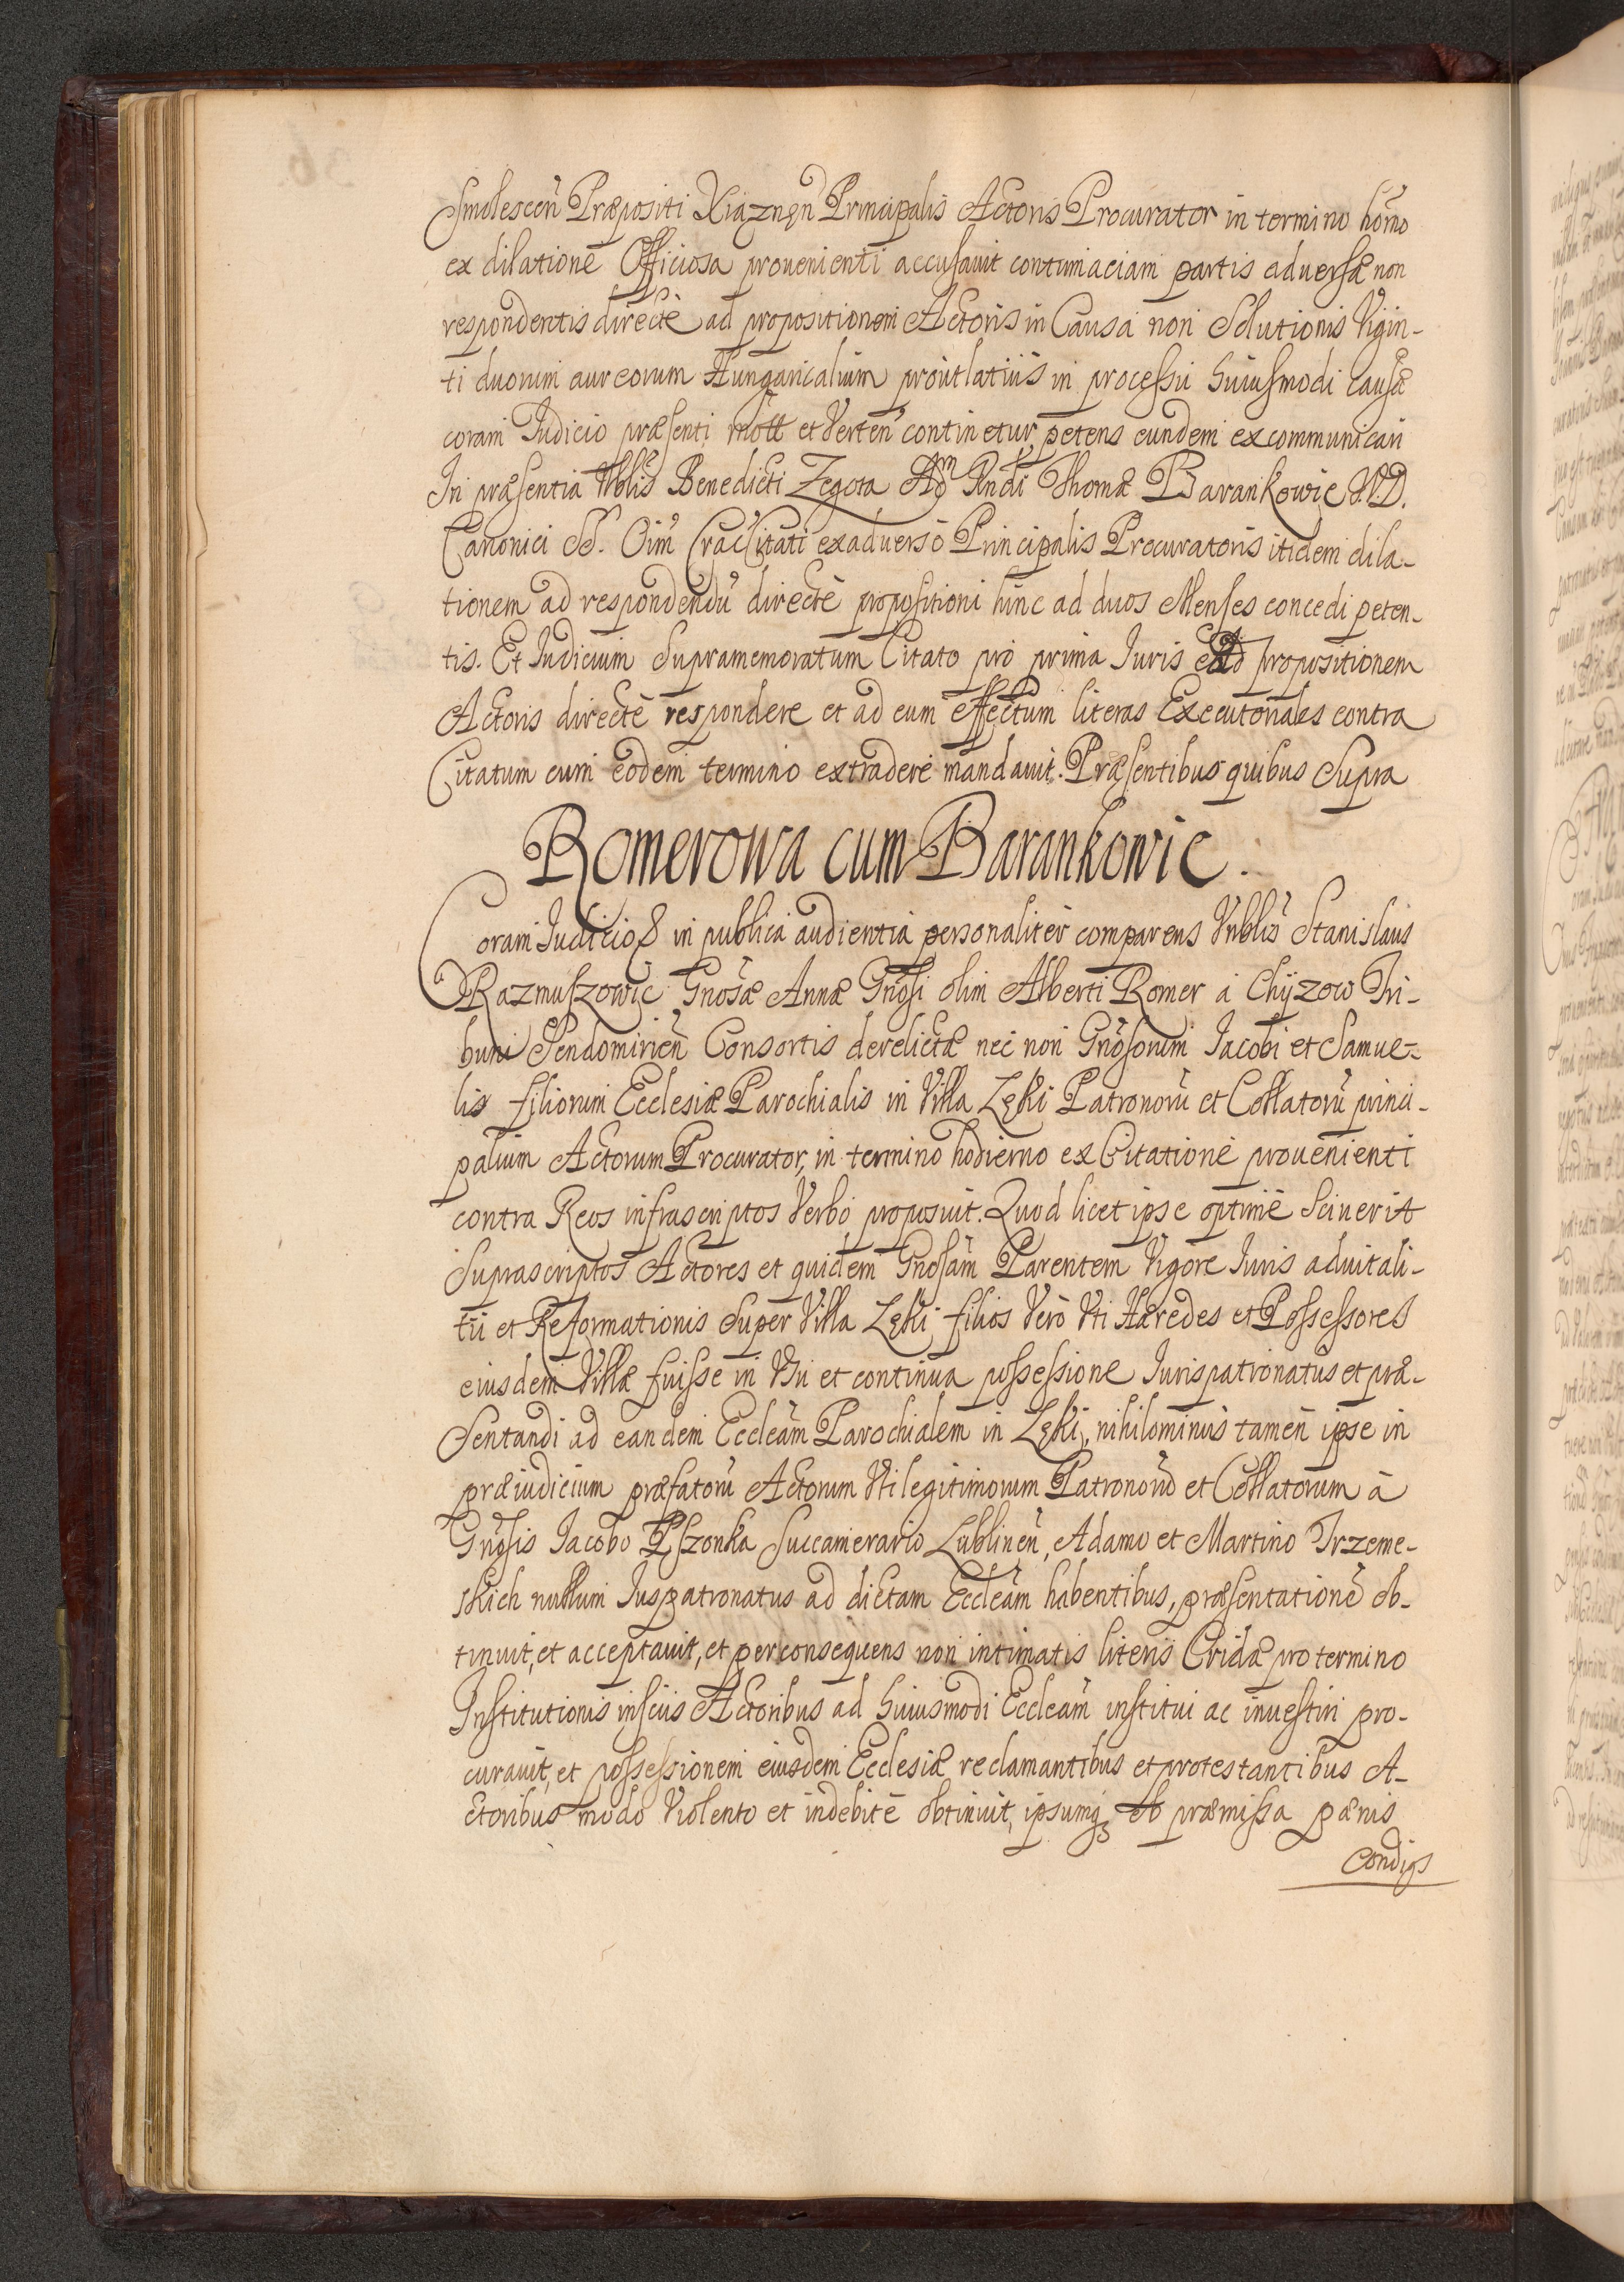 Smolescen̄ Præpositi Xiaznen̄ Principalis Actoris Procurator in termino hōrno
ex dilatione Officiosa prouenienti accusauit contumaciam partis aduersæ non
respondentis directè ad propositionem Actoris in Causa non Solutionis Vigin-
ti duorum aureorum Hungaricalium prout latius in processu huiusmodi causæ
coram Iudicio præsenti mott et Verten̄ continetur, petens eundem excommunicari
In præsentia Vblīs Benedicti Zegota Adm Rndi Thomæ Barankowic V.I.D.
Canonici SS. Oīm Crac̄ Citati ex aduerso Principalis Procuratoris itidem dila-
tionem ad respondendū directè propositioni hinc ad duos Menses concedi peten-
tis. Et Iudicium Supramemoratum Citato pro prima Iuris Ad propositionem
Actoris directè respondere et ad eum effectum literas Executoriales contra
Citatum cum eodem termino extradere mandauit. Præsentibus quibus Supra
Romerowa cum Barankowic.
Coram Iudicio & in publica audientia personaliter comparens Vnblīs Stanislaus
Razmuszowic Gnōsæ Annæ Gnōsi olim Alberti Romer à Chÿzow Tri-
buni Sendomirien̄ Consortis derelictæ nec non Gnōsorum Iacobi et Samue-
lis filiorum Ecclesiæ Parochialis in Villa Zęki Patronorū et Collatorū princi-
palium Actorum Procurator, in termino hodierno ex Citatione prouenienti
contra Reos infrascriptos Verbo proposuit. Quod licet ipse optimè Sciuerit
Suprascriptos Actores et quidem Gnōsam Parentem Vigore Iuris aduitali-
tii et Reformationis Super Villa Zęki filios Verò Vti Hæredes et Possessores
eiusdem Villæ fuisse in Vsu et continua possessione Iurispatronatus et præ-
Sentandi ad eandem Eccleām Parochialem in Zęki, nihilominus tamen ipse in
præiudicium præfatorū Actorum Vti legitimorum Patronorū et Collatorum à
Gnōsis Iacobo Pszonka Succamerario Lublinen̄, Adamo et Martino Trzeme-
skich nullum Iuspatronatus ad dictam Eccleām habentibus, præsentationē ob-
tinuit, et acceptauit, et per consequens non intimatis literis Cridæ pro termino
Institutionis insciis Actoribus ad huiusmodi Eccleām institui ac inuestiri pro-
curauit, et possessionem eiusdem Ecclesiæ reclamantibus et protestantibus A-
ctoribus modo Violento et indebitè obtinuit, ipsumq3 ob præmissa pænis
Condigs